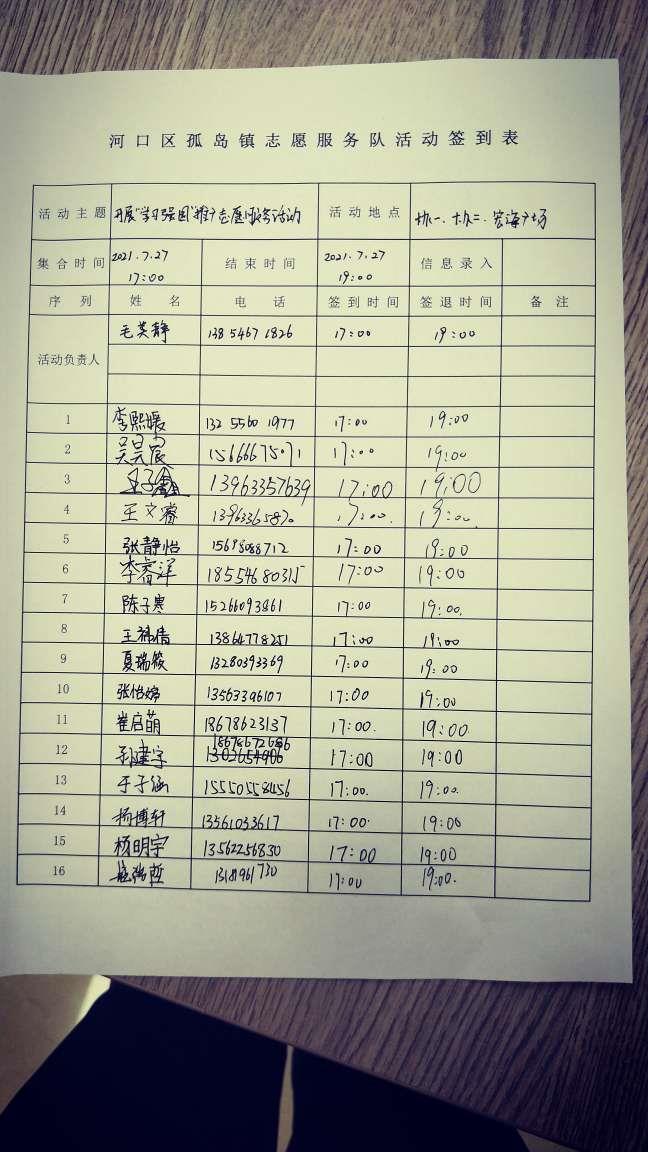 河口区孤岛镇志愿服务队活动签到表
活动主题 开展"学习强国"推广志愿服务活动 活动地点 协一、协二、宏海广场
集合时间 2021.7.27 17:00 结束时间 2021.7.27 19:00 信息录入
序列 姓名 电话 签到时间 签退时间 备注
活动负责人 毛英静 138 5467 1826 17:00 19:00
1 李熙媛 132 5560 1977 17:00 19:00
2 吴昊宸 15666675071 17:00 19:00
3 王子鑫 13963357639 17:00 19:00
4 王文睿 13963365870 17:00 19:00
5 张静怡 15698088712 17:00 19:00
6 李睿洋 18554680315 17:00 19:00
7 陈子寒 15266093861 17:00 19:00
8 王祎倩 13864778251 17:00 19:00
9 夏瑞筱 13280393369 17:00 19:00
10 张怡婷 13563396107 17:00 19:00
11 崔启萌 18678623137 17:00 19:00
12 孙建宇 18678672686 17:00 19:00
13 于子涵 15550558456 17:00 19:00
14 杨博轩 13561033617 17:00 19:00
15 杨明宇 13562256830 17:00 19:00
16 17:00 19:00